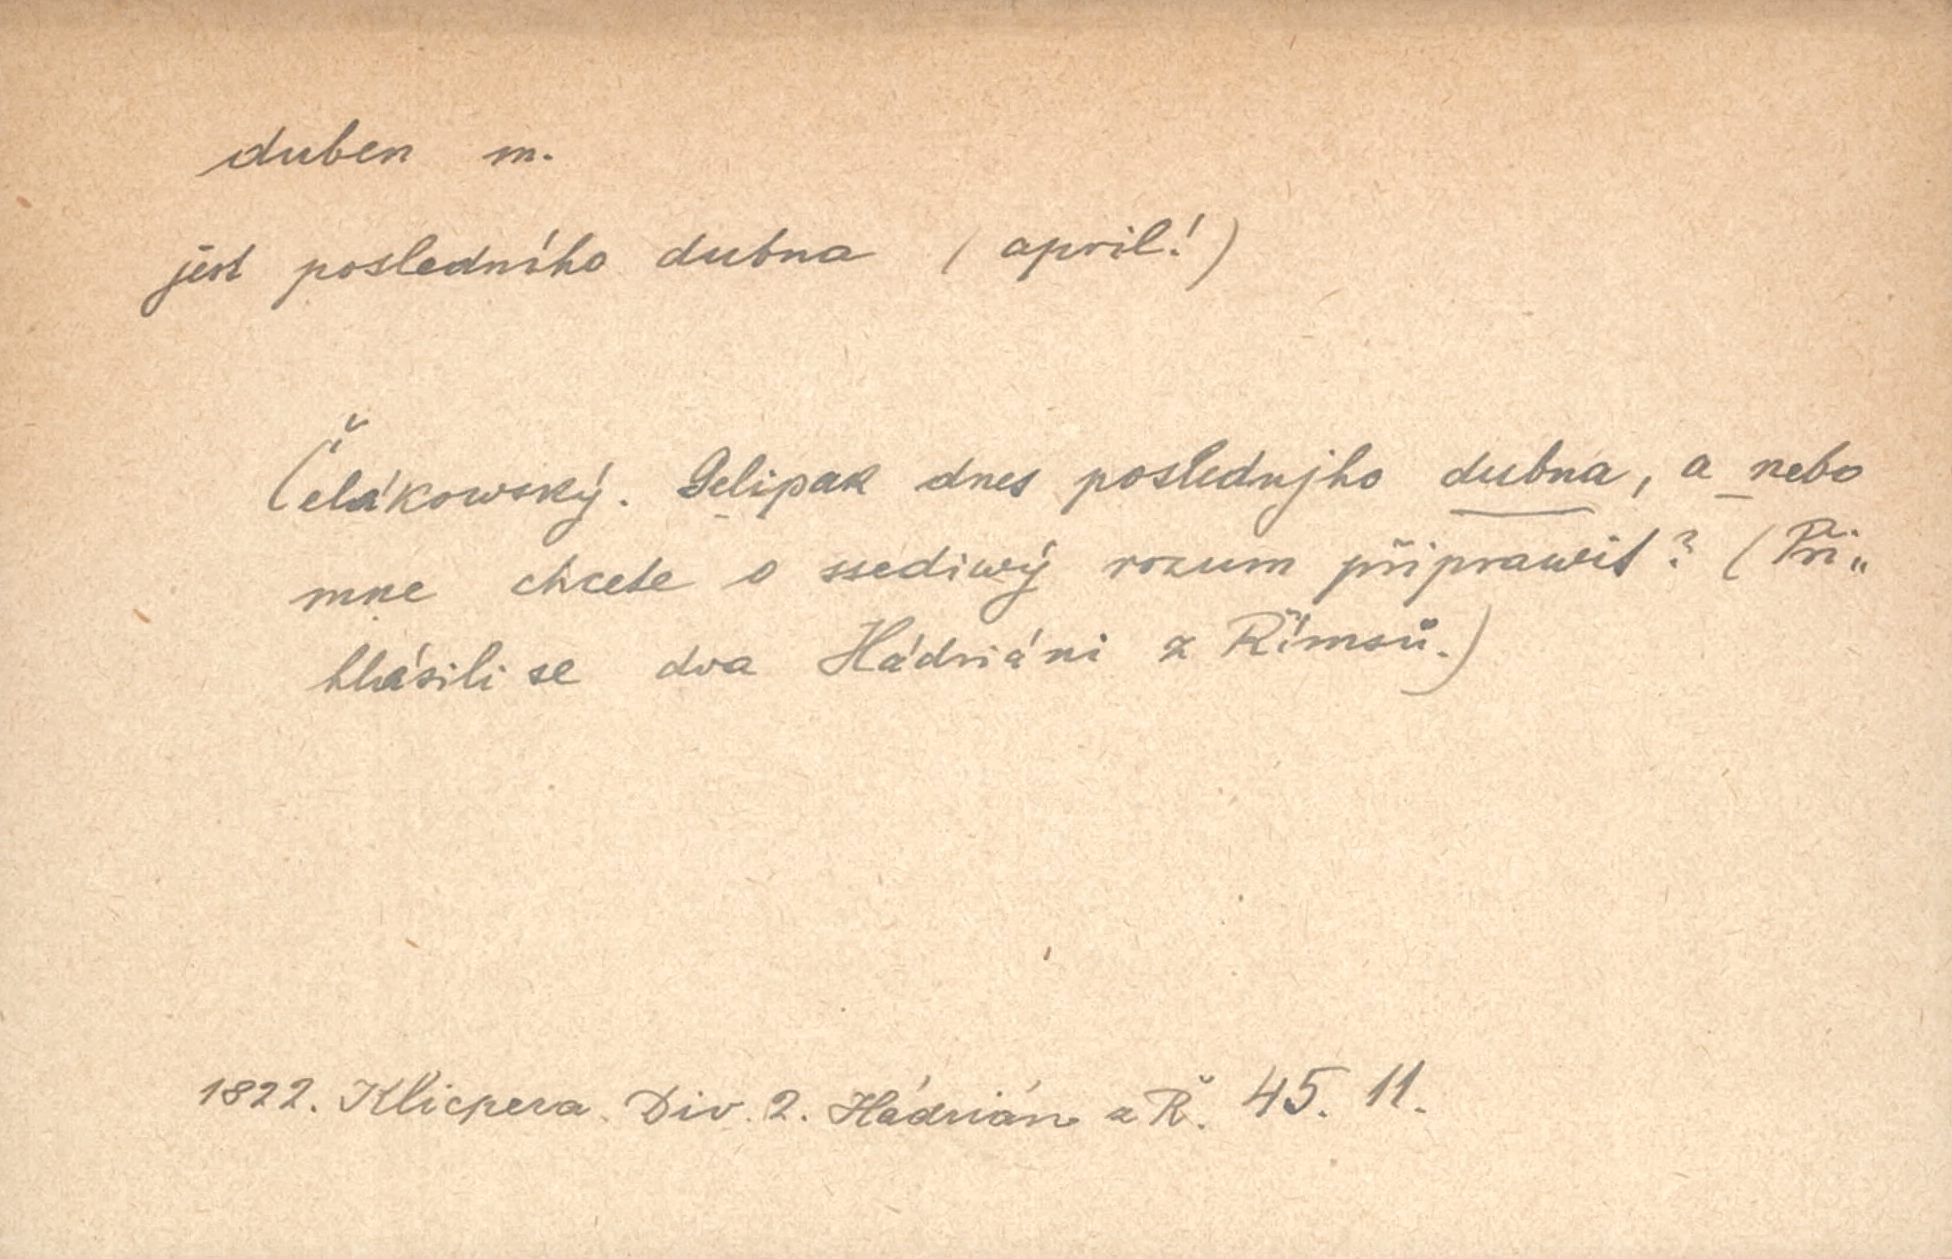 duben m.
jest posledního dubna (april!)
Čelákowský. Gelipak dnes poslednjho dubna, a nebo
mne chcete o ssediwý rozum připrawit? (Při„
hlásili se dva Hádriáni z Římsů.)
1822. Klicpera. Div. 2. Hádrián z Ř. 45. 11.